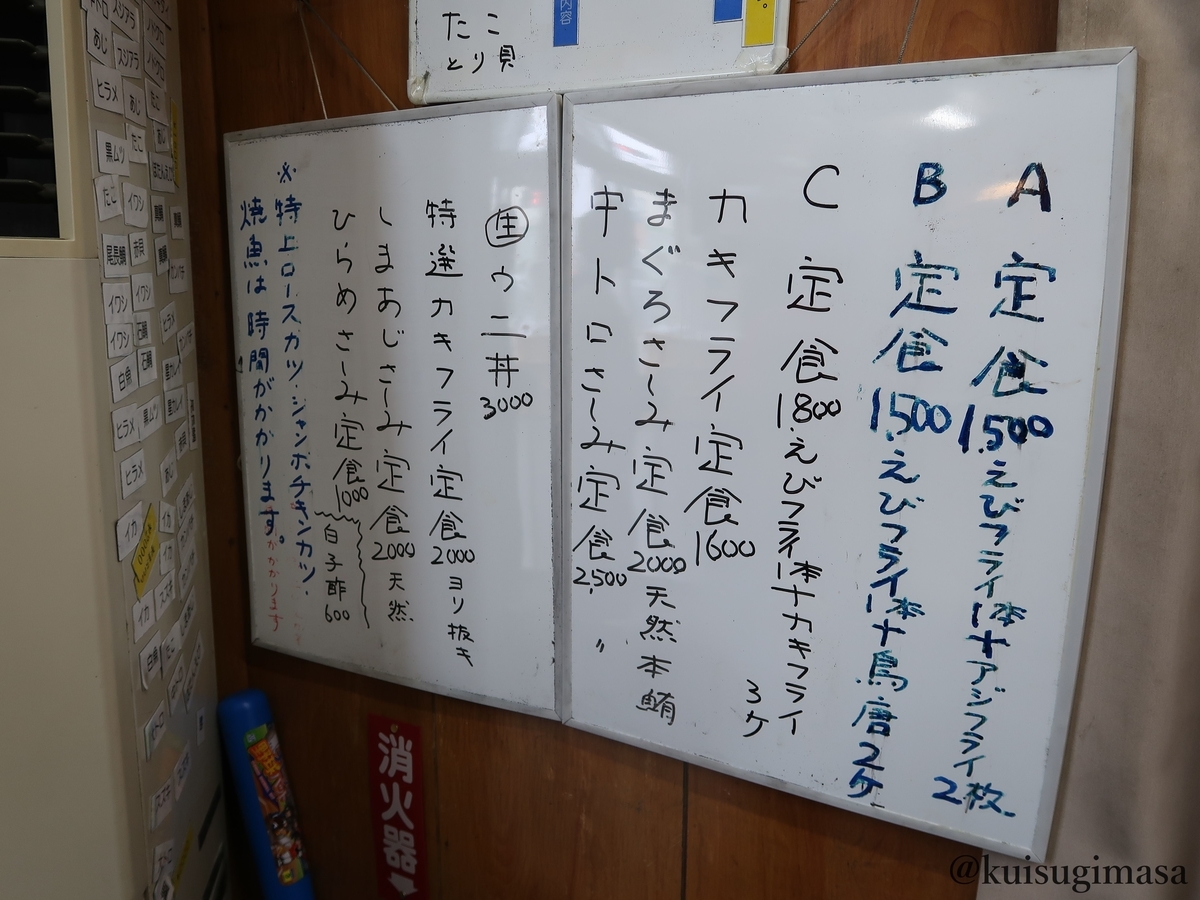 たこ
とり貝
内容
A定食1,500えびフライ1本+アジフライ2枚
B定食1,500えびフライ1本+鳥唐2ケ
C定食1800えびフライ1本+カキフライ3ケ
カキフライ定食1600
まぐろさしみ定食2000天然本鮪
中トロさしみ定食2,500〃
ウニ丼3000
特選カキフライ定食2000ヨリ抜き
しまあじさしみ定食2000天然
ひらめさしみ定食1000
白子酢600
※特上ロースカツ.ジャンボチキンカツ.
焼魚は時間がかかります。
がかかります
あじ
スジアラ
ヒラメ
あじ
黒ムツ
たこ
たこ
イワシ
尾長鯛
赤貝
イワシ
イワシ
イワシ
石鯛
白魚
石鯛
ヒラメ
黒ムツ
ヒラメ
イカ
イカ
白魚
消火器
@kuisugimasa